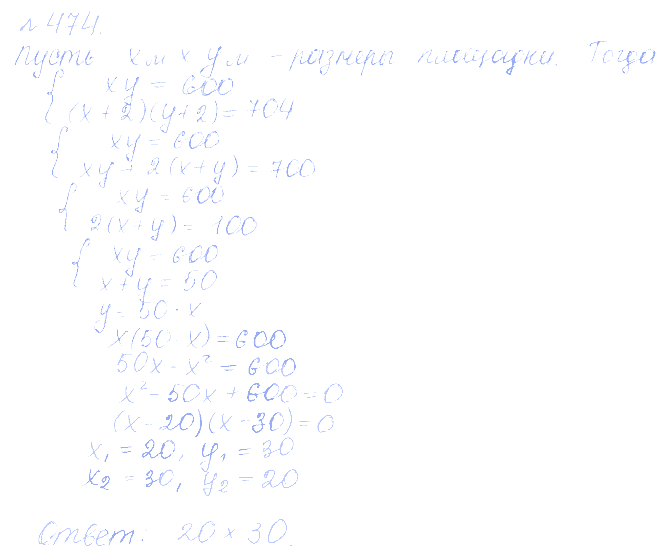 № 474.
Пусть x м × y м – размеры площадки. Тогда
{ xy = 600
(x + 2)(y + 2) = 704
{ xy = 600
xy + 2(x + y) = 700
{ xy = 600
2(x + y) = 100
{ xy = 600
x + y = 50
y = 50 - x
x(50 - x) = 600
50x - x² = 600
x² - 50x + 600 = 0
(x - 20)(x - 30) = 0
x₁ = 20, y₁ = 30
x₂ = 30, y₂ = 20
Ответ: 20 × 30.